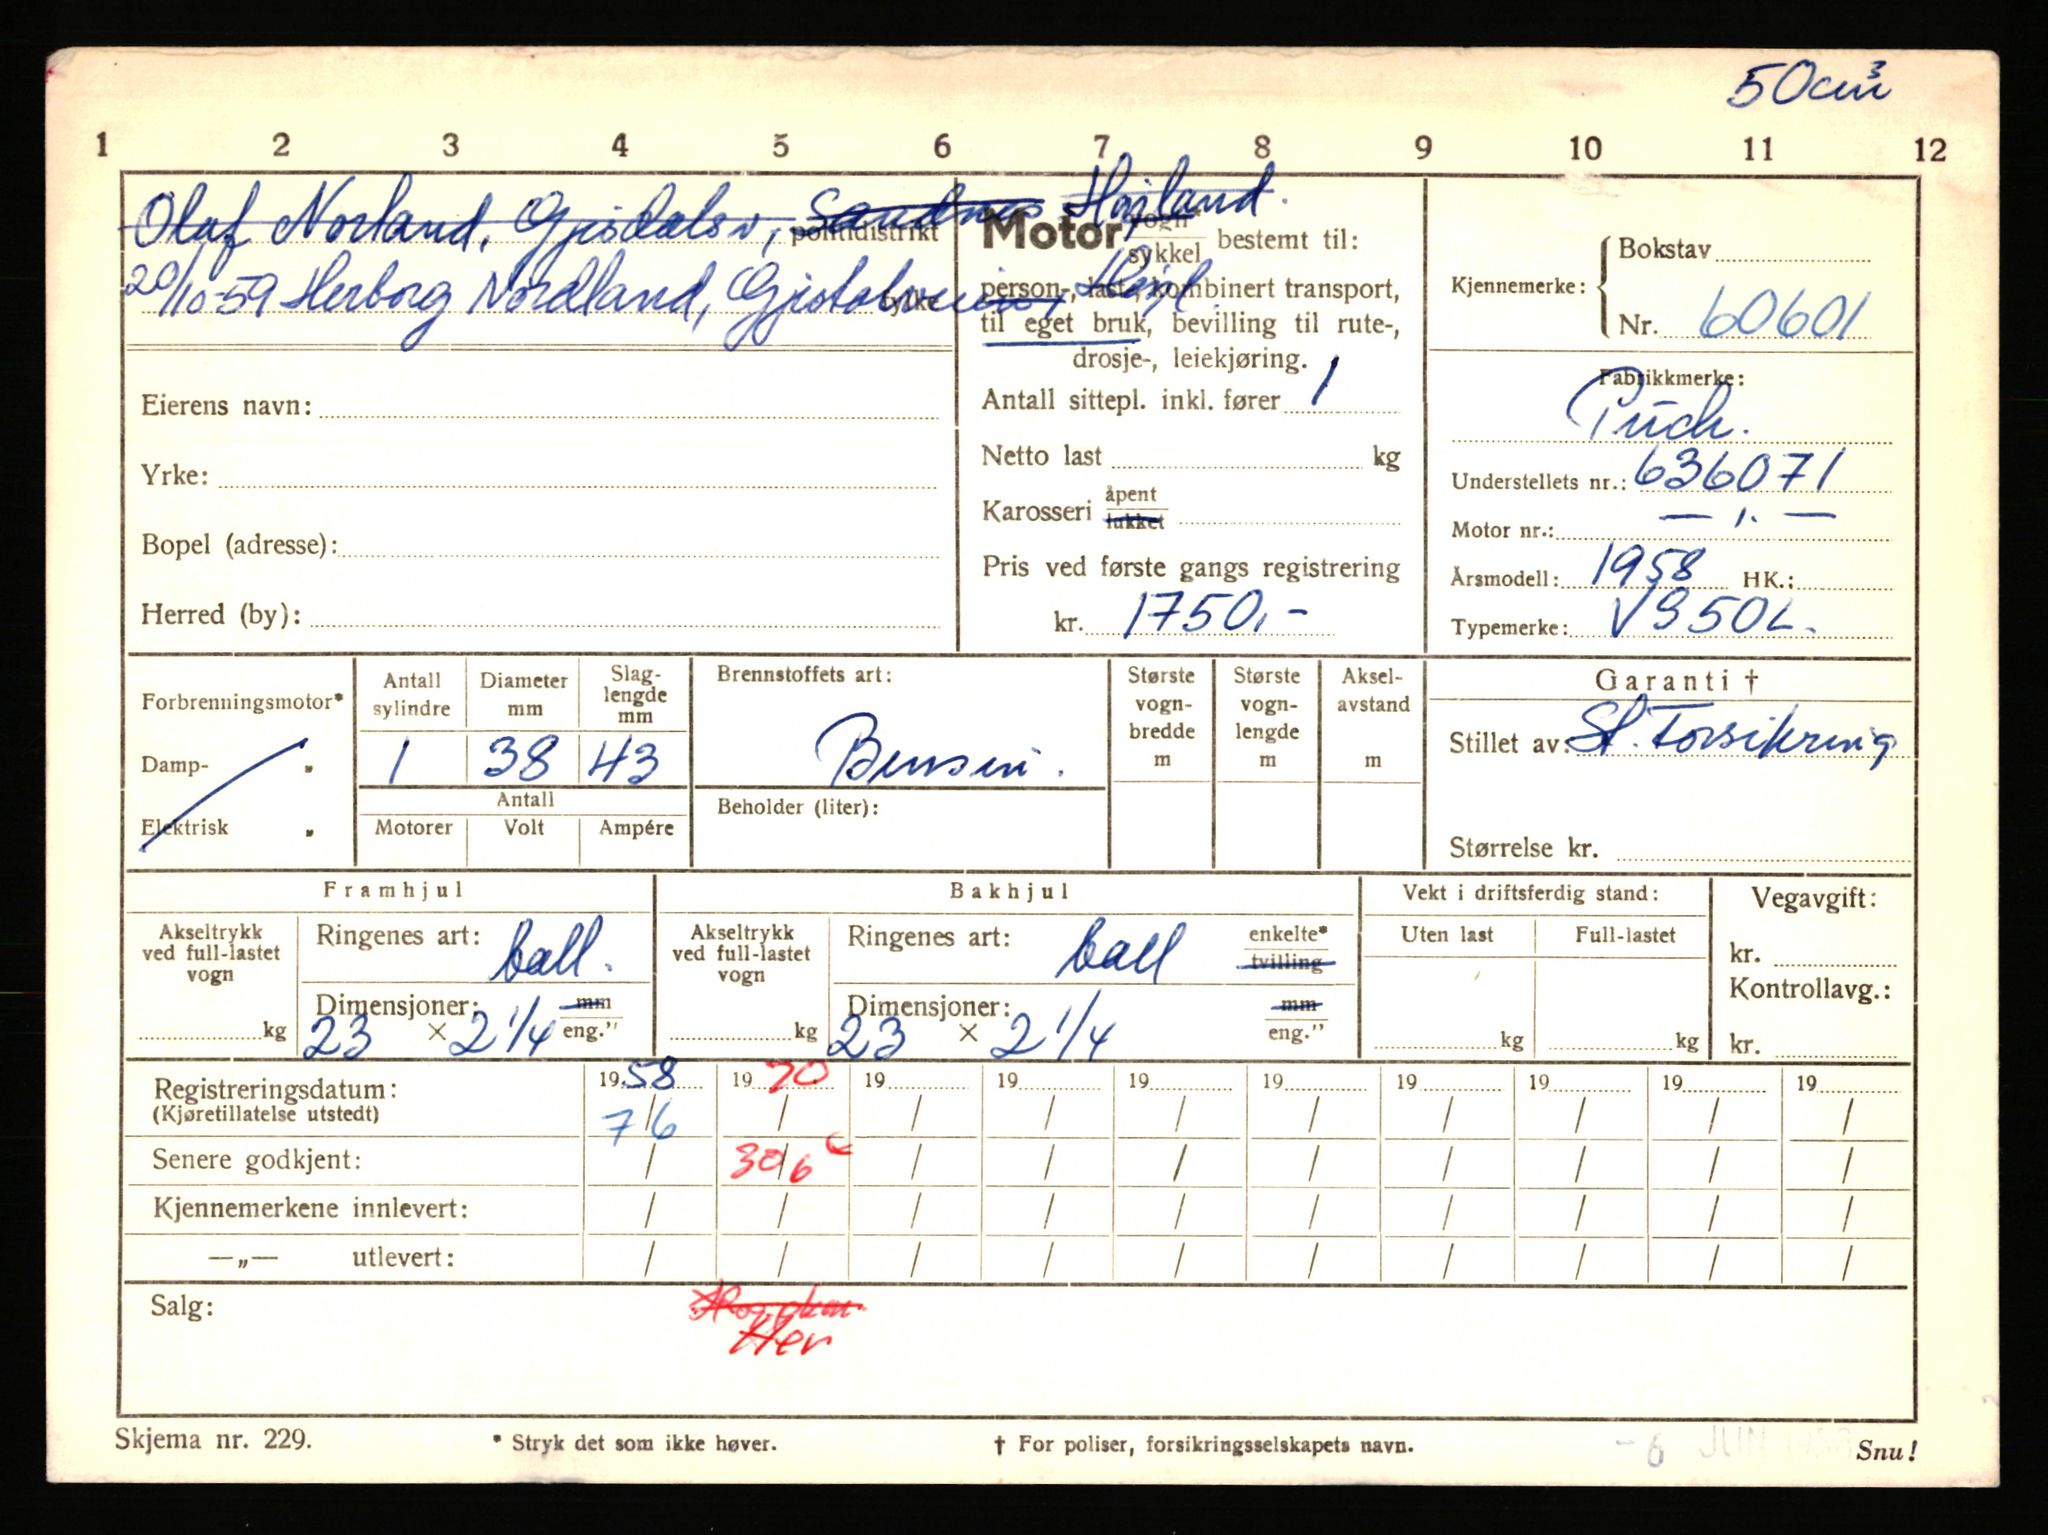 50cm³
1 2 3 4 5 6 7 8 9 10 11 12
Olaf Norland, Gjesdalsv, Sandnes Høyland.
politidistrikt
20/10-59 Herborg Nordland, Høyl.
fylke
Eierens navn:
Yrke:
Bopel (adresse):
Herred (by):
Motor vogn* sykkel bestemt til:
person-, last-, kombinert transport,
til eget bruk, bevilling til rute-,
drosje-, leiekjøring.
Antall sittepl. inkl. fører 1
Netto last kg
Karosseri åpent lukket
Pris ved første gangs registrering
kr. 1750,-
Kjennemerke: Bokstav
Nr. 60601
Fabrikkmerke:
Puch.
Understellets nr.: 636071
Motor nr.: — ı. —
Årsmodell: 1958 HK.:
Typemerke: VS 50L.
Forbrenningsmotor*
Damp- „
Elektrisk „
Antall sylindre
Diameter mm
Slag-lengde mm
1 38 43
Antall
Motorer Volt Ampére
Brennstoffets art:
Bensin.
Beholder (liter):
Største vogn-bredde m
Største vogn-lengde m
Aksel-avstand m
Garanti †
Stillet av: St. Forsikring
Størrelse kr.
Framhjul
Akseltrykk ved full-lastet vogn
kg
Ringenes art: ball.
Dimensjoner: mm
23 × 2 1/4 eng."
Bakhjul
Akseltrykk ved full-lastet vogn
kg
Ringenes art: ball enkelte* tvilling
Dimensjoner: mm
23 × 2 1/4 eng."
Vekt i driftsferdig stand:
Uten last Full-lastet
kg kg
Vegavgift:
kr.
Kontrollavg.:
kr.
Registreringsdatum: 19 58 19 70 19 19 19 19 19 19 19 19
(Kjøretillatelse utstedt) 7/6 / / / / / / / / /
Senere godkjent: / 30/6 / / / / / / / /
Kjennemerkene innlevert: / / / / / / / / / /
—„— utlevert: / / / / / / / / / /
Salg:
Her
Skjema nr. 229.
* Stryk det som ikke høver.
† For poliser, forsikringsselskapets navn.
- 6 JUN
Snu!